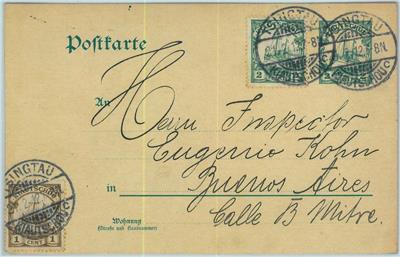 Postkarte
An
Herrn Inspector
Eugenio Kohn
in Buenos Aires
Calle B Mitre.
Wohnung
(Straße und Hausnummer)
TSINGTAU
KIAUTSCHOU
2
TSINGTAU
KIAUTSCHOU
TSINGTAU
KIAUTSCHOU
1 CENT 1